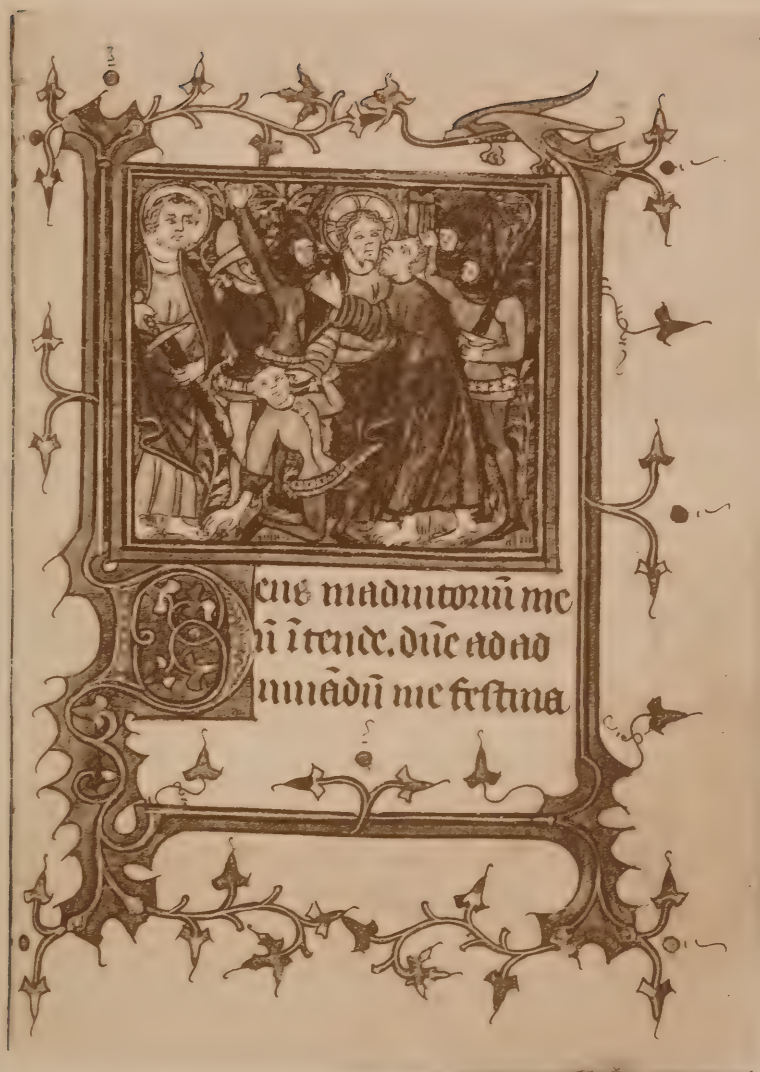 Deus in adiutoriū me
ū ītende. dn̄e ad ad
iuuādū me festina